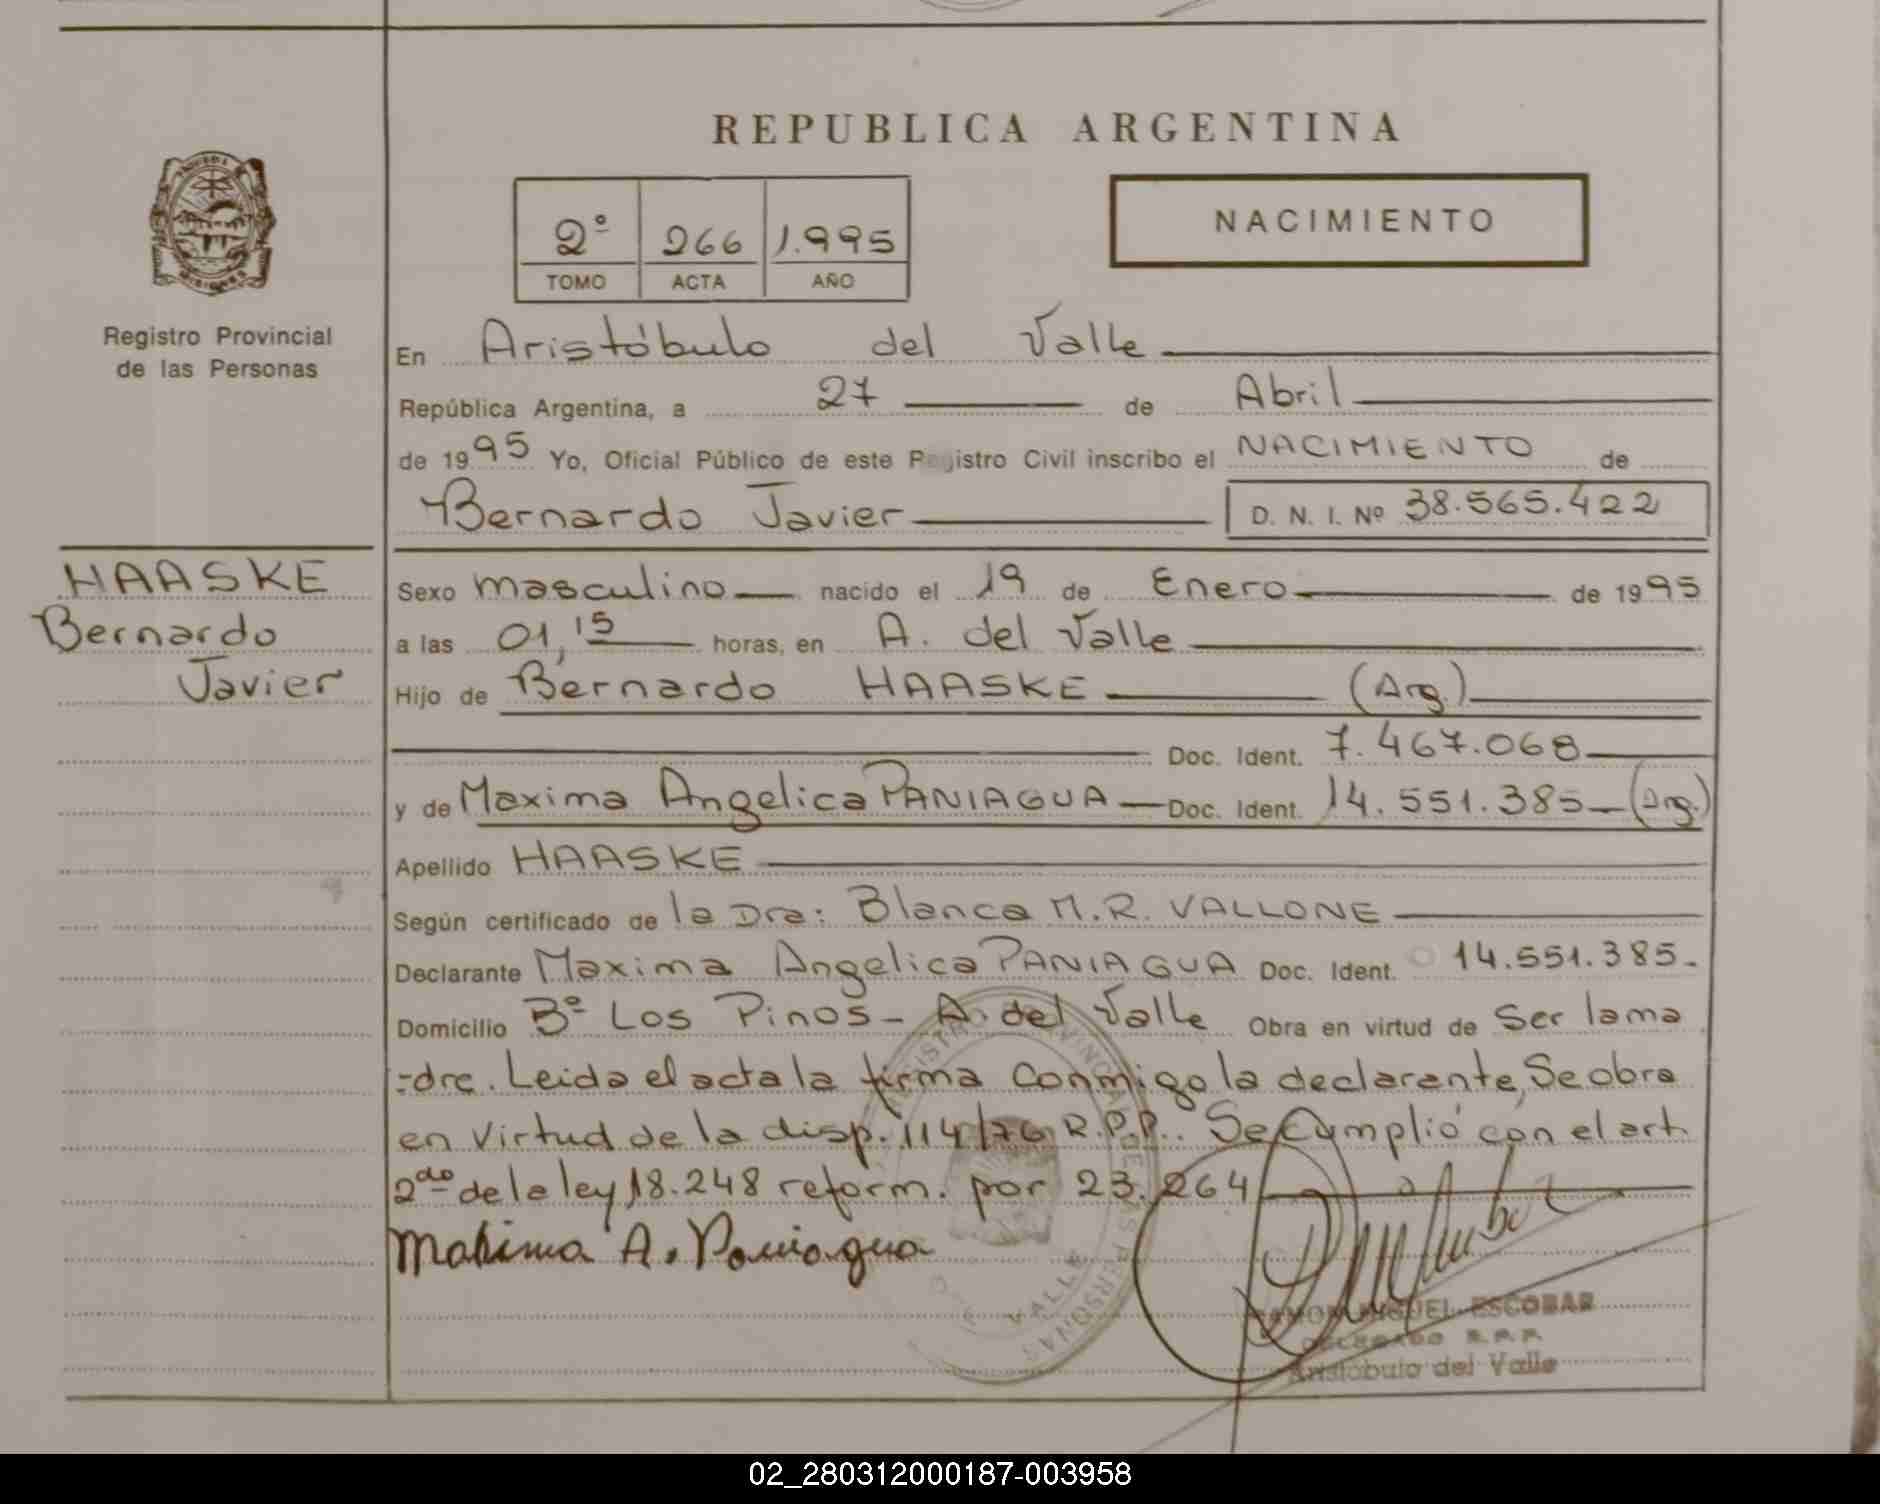 REPUBLICA ARGENTINA
2º 266 1.995
TOMO ACTA AÑO
NACIMIENTO
Registro Provincial
de las Personas
En Aristóbulo del Valle
República Argentina, a 27 de Abril
de 1995 Yo, Oficial Público de este Registro Civil inscribo el NACIMIENTO de
Bernardo Javier D. N. I. Nº 38.565.422
HAASKE
Bernardo
Javier
Sexo masculino nacido el 19 de Enero de 1995
a las 01,15 horas, en A. del Valle
Hijo de Bernardo HAASKE (Arg.)
Doc. Ident. 7.467.068
y de Maxima Angelica PANIAGUA Doc. Ident. 14.551.385 (Arg.)
Apellido HAASKE
Según certificado de la Dra: Blanca M.R. VALLONE
Declarante Maxima Angelica PANIAGUA Doc. Ident. 14.551.385.
Domicilio Bº Los Pinos - A. del Valle Obra en virtud de Ser la ma
=dre. Leida el acta la firma conmigo la declarante, Se obra
en virtud de la disp. 114/76 R.P.P.. Se Cumplió con el art.
2do de la ley 18.248 reform. por 23.264
Maxima A. Paniagua
RAMON MIGUEL ESCOBAR
DELEGADO R.P.P.
Aristóbulo del Valle
02_280312000187-003958